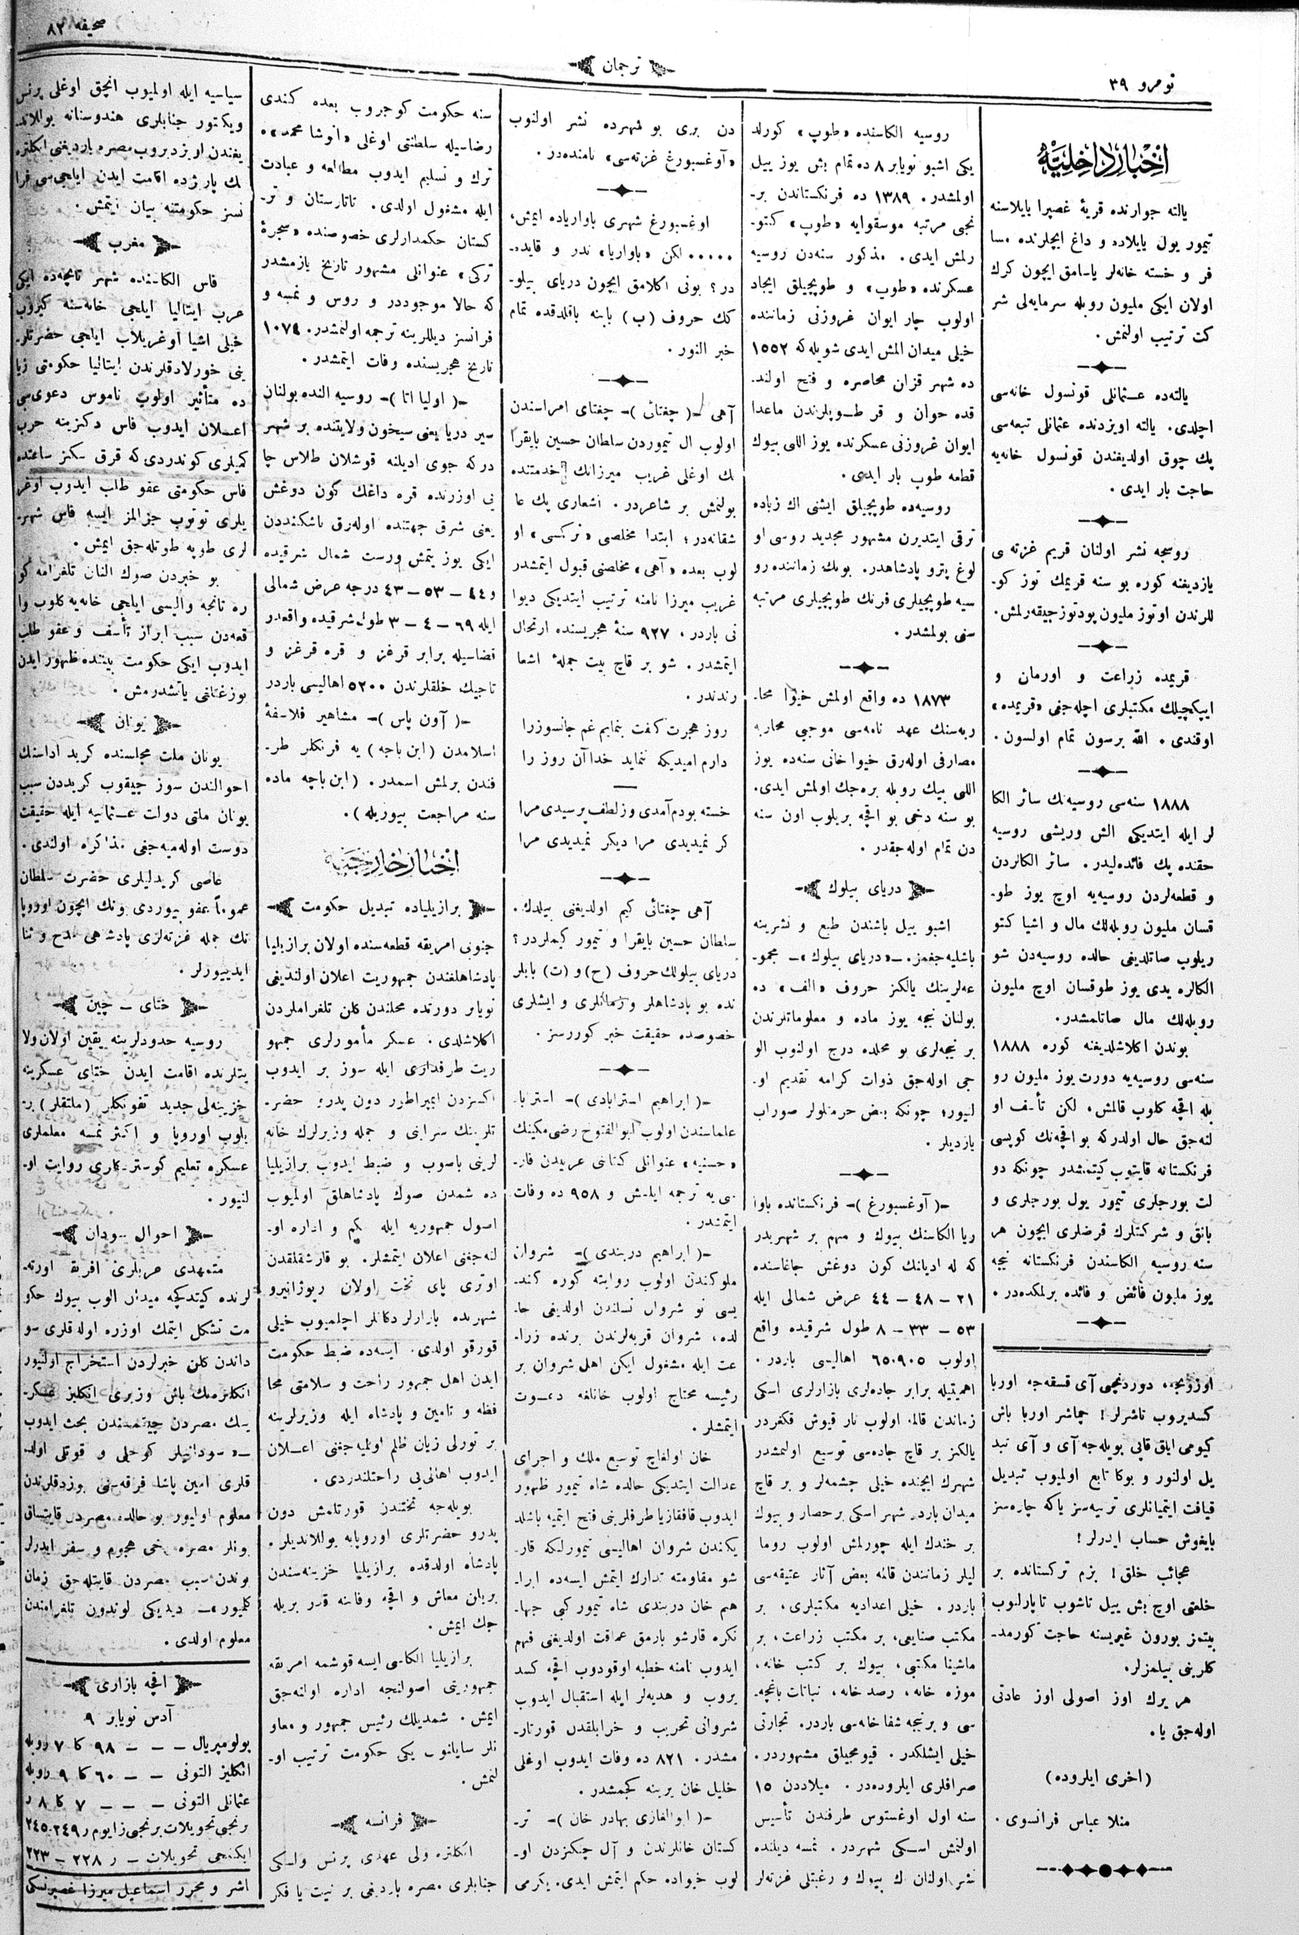 نومرو ۳۹
ترجمان
صحیفه ۸۲
اخبار داخلیه
یالته جوارنده قریۀ غصپرا یایلاسنه
تیمور یول یاپلاده و داغ ایچلرنده مسا
فر و خسته خانه‌لر یاسامق ایچون كرك
اولان ایكی ملیون روبله سرمایه‌لی شر
كت ترتیب اولنمش.
یالته‌ده عثمانلی قونسول خانه‌سی
اچلدی. یالته اویزدنده عثمانلی تبعه‌سی
پك چوق اولدیغندن قونسول خانه‌یه
حاجت بار ایدی.
روسجه نشر اولنان قریم غزته‌سی
یازدیغنه كوره بو سنه قریمك توز كو‌ـ
للرندن اوتوز ملیون پود توز جیقه‌رلمش.
قریمده زراعت و اورمان و
ایپكچیلك مكتبلری اچله‌جغی «قریمده»
اوقندی. الله برسون تمام اولسون.
۱۸۸۸ سنه‌سی روسیه‌نك سائر الكا
لر ایله ایتدیكی الش وریشی روسیه
حقنده پك فائده‌لیدر. سائر الكالردن
و قطعه‌لردن روسیه‌یه اوچ یوز طو‌ـ
قسان ملیون روبله‌لك مال و اشیا كتو
ریلوب صاتلدیغی حالده روسیه‌دن شو
الكالره یدی یوز طوقسان اوچ ملیون
روبله‌لك مال صاتلمشدر.
بوندن اكلاشلدیغنه كوره ۱۸۸۸
سنه‌سی روسیه‌یه دورت یوز ملیون رو
بله اقچه كلوب قالمش، لكن تأسف او
لنه‌جق حال اولدركه بو اقچه‌نك كوپسی
فرنكستانه قایتوب كیتمشدر چونكه دو
لت بورجلری تیمور یول بورجلری و
بانق و شركتلرك قرضلری ایچون هر
سنه روسیه الكاسندن فرنكستانه نیجه
یوز ملیون فائض و فائده برلمكده‌در.
اوززیجه دوردنجی آی قسقه‌جه اوربا
كسدیروب تاشرلر! چماشر اوربا باش
كیومی ایاق قابی بویله‌جه آی و آی تبد
یل اولنور و بوكا تابع اولمیوب تبدیل
قیافت ایتمیانلری تربیه‌سز یاكه چاره‌سز
بایغوش حساب ایدرلر!
عجائب خلق! بزم تركستانده بر
خلعتی اوچ بش ییل تاشوب تا پارلنوب
بیتمز بورون غیریسنه حاجت كورمد‌ـ
كلرینی بیلمزلر.
هر یرك اوز اصولی اوز عادتی
اوله‌جق یا.
(اخری ایلروده)
منلا عباس فرانسوی.
روسیه الكاسنده «طوپ» كورلد
یكی اشبو نویابر ۸ ده تمام بش یوز ییل
اولمشدر. ۱۳۸۹ ده فرنكستاندن بر‌ـ
نجی مرتبه موسقوایه «طوپ» كتو‌ـ
رلمش ایدی. مذكور سنه‌دن روسیه
عسكرنده «طوپ» و طوپجیلق ایجاد
اولوب چار ایوان غروزنی زماننده
خیلی میدان المش ایدی شویله‌كه ۱۵۵۲
ده شهر قزان محاصره و فتح اولند‌ـ
ایوان غروزنی عسكرنده یوز اللی بیوك
قطعه طوپ بار ایدی.
روسیه‌ده طوپجیلق ایشنی اك زیاده
ترقی ایتدیرن مشهور مجدید روسی او
لوغ پترو پادشاهدر. بونك زماننده رو
سیه طوپجیلری فرنك طوپجیلری مرتبه
سنی بولمشدر.
۱۸۷۳ ده واقع اولمش خیوا محا‌ـ
ربه‌سنك عهد نامه‌سی موجبی محاربه
مصارفی اوله‌رق خیوا خانی سنه‌ده یوز
اللی بیك روبله بره‌جك اولمش ایدی.
بو سنه دخی بو اقچه بریلوب اون سنه
دن تمام اوله‌جقدر.
دریای بیلوك
اشبو ییل باشندن طبع و نشرینه
باشلیه‌جغمز. ـ«دریای بیلوك»ـ مجمو‌ـ
عه‌لرینك یالكز حروف «الف» ده
بولنان نیجه یوز ماده و معلوماتلرندن
بر نیجه‌لری بو محلده درج اولنوب الو
جی اوله‌جق ذوات كرامه تقدیم او‌ـ
لنیور؛ چونكه بعض حرمتلولر صوراب
یازدیلر.
ـ(آوغسبورغ)ـ فرنكستانده باوا
ریا الكاسنك بیوك و مهم بر شهریدر
كه له ادیانك كون دوغش جاغاسنده
۲۱ – ۴۸ – ۴۴ عرض شمالی ایله
۵۳ – ۳۳ – ۸ طول شرقیده واقع
اولوب ۶۵۰۹۰۵ اهالیسی باردر.
اهمیتیله برابر جاده‌لری بازارلری اسكی
زماندن قالمه اولوب تار قیوش فكفردر
یالكز بر قاچ جاده‌سی توسیع اولنمشدر
شهرك ایچنده خیلی چشمه‌لر و بر قاچ
میدان باردر شهر اسكی برحصار و بیوك
بر خندك ایله چورلمش اولوب روما
لیلر زمانندن قالمه بعض آثار عتیقه‌سی
باردر. خیلی اعدادیه مكتبلری، بر
مكتب صنایعی، بر مكتب زراعت، بر
ماشینا مكتبی، بیوك بر كتب خانه،
موزه خانه، رصد خانه، نباتات باغچه‌ـ
سی و برنیجه شفا خانه‌سی باردر. تجارتی
خیلی ایشلكدر. قیومجیلق مشهوردر.
صرافلری ایلروده‌در. میلاددن ۱۵
سنه اول اوغستوس طرفندن تأسیس
اولنمش اسكی شهردر. نمسه دیلنده
نشر اولنان اك بیوك و رغبتلی غزته‌لر
دن بری بو شهرده نشر اولنوب
«آوغسبورغ غزته‌سی» نامنده‌در.
اوغسبورغ شهری باواریاده ایمش،
۰۰۰۰۰ لكن «باواریا» ندر و قایده‌ـ
در؟ بونی اكلامق ایچون دریای بیلو‌ـ
كك حروف (ب) بابنه باقلدقده تمام
خبر النور.
آهی ـ(چغتائی)ـ چغتای امراسندن
اولوب ال تیموردن سلطان حسین بایقرا
نك اوغلی غریب میرزانك خدمتنده
بولنمش بر شاعردر. اشعاری پك عا
شقانه‌در؛ ابتدا مخلصی «نركسی» او
لوب بعده «آهی» مخلصنی قبول ایتمشدر
غریب میرزا نامنه ترتیب ایتدیكی دیوا
نی باردر. ۹۲۷ سنۀ هجریسنده ارتحال
ایتمشدر. شو بر قاچ بیت جملۀ اشعا
رندندر.
روز هجرت كفت بنمایم غم جانسوزرا
دارم امیدیكه ننماید خدا آن روز را
خسته بودم آمدی وزلطف پرسیدی مرا
كر نمیدیدی مرا دیكر نمیدیدی مرا
آهی چغتائی كیم اولدیغنی بیلدك.
سلطان حسین بایقرا و تیمور كیملردر؟
دریای بیلولك حروف (ح) و (ت) بابلر
نده بو پادشاهلر و زمانلری و ایشلری
خصوصده حقیقت خبر كوررسز.
ـ(ابراهیم استرابادی)ـ استرابا‌ـ
علماسندن اولوب ابوالفتوح رضی مكینك
«حسنیه» عنوانلی كتابنی عربیدن فار‌ـ
سی‌یه ترجمه ایلمش و ۹۵۸ ده وفات
ایتمشدر.
ـ(ابراهیم دربندی)ـ شروان
ملوكندن اولوب روایته كوره كند‌ـ
یسی نو شروان نسلندن اولدیغی حا‌ـ
لده، شروان قریه‌لرندن برنده زرا‌ـ
عت ایله مشغول ایكن اهل شروان بر
رئیسه محتاج اولوب خانلغه دعوت
ایتمشلر.
خان اولغاچ توسیع ملك و اجرای
عدالت ایتدیكی حالده شاه تیمور ظهور
ایدوب قافقازیا طرفلرینی فتح ایتمیه باشلد
یكندن شروان اهالیسی تیمورلنكه قار‌ـ
شو مقاومته تدارك ایتمش ایسه‌ده ابرا‌ـ
هیم خان دربندی شاه تیمور كبی جها‌ـ
نكره قارشو بارمق عماقت اولدیغنی فهم
ایدوب نامنه خطبه اوقودوب اقچه كسد
یروب و هدیه‌لر ایله استقبال ایدوب
شروانی تخریب و خرابلقدن قورتار‌ـ
مشدر. ۸۲۱ ده وفات ایدوب اوغلی
خلیل خان یرینه كچمشدر.
ـ(ابوالغازی بهادر خان)ـ تر‌ـ
كستان خانلرندن و آل چنكزدن او‌ـ
لوب خیواده حكم ایتمش ایدی. یكرمی
سنه حكومت كوجروب بعده كندی
رضاسیله سلطنتی اوغلی «انوشا محمد»ه
ترك و تسلیم ایدوب مطالعه و عبادت
ایله مشغول اولدی. تاتارستان و تر‌ـ
كستان حكمدارلری خصوصنده «سجرۀ
تركی» عنوانلی مشهور تاریخ یازمشدر
كه حالا موجوددر و روس و نمسه و
فرانسز دیللرینه ترجمه اولنمشدر. ۱۰۷۴
تاریخ هجریسنده وفات ایتمشدر.
ـ(اولیا اتا)ـ روسیه النده بولنان
سیر دریا یعنی سیخون ولایتنده بر شهر
دركه جوی ادیلنه قوشلان طلاس چا
یی اوزرنده قره داغك كون دوغش
یعنی شرق جهتنده اوله‌رق تاشكنددن
ایكی یوز یتمش ورست شمال شرقیده
و ۴۴ – ۵۳ – ۴۳ درجه عرض شمالی
ایله ۶۹ – ۴ – ۳ طول شرقیده واقعدر
قضاسیله برابر قرغز و قره قرغز و
تاجیك خلقلرندن ۵۲۰۰ اهالیسی باردر
ـ(آون پاس)ـ مشاهیر فلاسفۀ
اسلامدن (ابن باجه) یه فرنكلر طر‌ـ
فندن برلمش اسمدر. (ابن باچه ماده
سنه مراجعت بیوریله).
اخبار خارجیه
برازیلیاده تبدیل حكومت
جنوبی امریقه قطعه‌سنده اولان برازیلیا
پادشاهلغندن جمهوریت اعلان اولندیغی
نویابر دورنده محلندن كلن تلغراملردن
اكلاشلدی. عسكر مأمورلری جمهو
ریت طرفداری ایله سوز بر ایدوب
اكسزدن ایمپراطور دون پدرو حضر‌ـ
تلرینك سراینی و جمله وزیرلرك خانه
لرینی باسوب و ضبط ایدوب برازیلیا
ده شمدن صوك پادشاهلق اولمیوب
اصول جمهوریه ایله حكم و اداره او‌ـ
لنه‌جغی اعلان ایتمشلر. بو قارشقلقدن
اوتری پای تخت اولان ریوژانیرو
شهرنده بازارلر دكانلر اچلمیوب خیلی
قورقو اولدی. ایسه‌ده ضبط حكومت
ایدن اهل جمهور راحت و سلامتی محا
فظه و تامین و پادشاه ایله وزیرلرینه
بر تورلی زیان ظلم اولمیه‌جغنی اعلان
ایدوب اهالی‌یی راحتلندردی.
بویله‌جه تختندن قورتلمش دون
پدرو حضرتلری اوروپایه یوللاندیلر.
پادشاه اولدقده برازیلیا خزینه‌سندن
بریان معاش و اقچه وفاتنه قدر بریله
جك ایمش.
برازیلیا الكاسی ایسه قوشمه امریقه
جمهورینی اصولنجه اداره اولنه‌جق
ایمش. شمدیلك رئیس جمهور و معاو
نلر سایلنوب یكی حكومت ترتیب او‌ـ
لنمش.
فرانسه
انكلتره ولی عهدی پرنس والسكی
جنابلری مصره باردیغی بر نیت یا فكر
سیاسیه ایله اولمیوب انجق اوغلی پرنس
ویكتور جنابلری هندوستانه یوللاند‌ـ
یغندن اوزدیروب مصره باردیغنی انكلتره
نك پارژده اقامت ایدن ایلجیسی فرا
نسز حكومتنه بیان ایتمش.
مغرب
فاس الكاسنده شهر تانجه‌ده ایكی
عرب ایتالیا ایلجی خانه‌سنه كیروب
خیلی اشیا اوغریلاب ایلجی حضرتلر‌ـ
ینی خورلادقلرندن ایتالیا حكومتی زیا
ده متأثیر اولوب ناموس دعوی‌سی
اعلان ایدوب فاس دكزینه حرب
كمیلری كوندردی كه قرق سكز ساعتده
فاس حكومتی عفو طلب ایدوب اوغر
یلری توتوب جزالمز ایسه فاس شهر‌ـ
لری طوپه طوتله‌جق ایمش.
بو خبردن صوك النان تلغرامه كو
ره تانجه والیسی ایلجی خانه‌یه كلوب وا
قعه‌دن سبب ابراز تأسف و عفو طلب
ایدوب ایكی حكومت بیننده ظهور ایدن
بوزغنلغی یاتشدرمش.
یونان
یونان ملت مجلسنده كرید اداسنك
احوالندن سوز جیقوب كریددن سبب
یونان ملتی دولت عثمانیه ایله حقیقت
دوست اوله‌میه‌جغی مذاكره اولندی.
عاصی كریدلیلری حضرت سلطان
عموماً عفو بیوردی ونك ایچون اوروپا
نك جمله غزته‌لری پادشاهی مدح و ثنا
ایدیبورلر.
ختای – چین
روسیه حدودلرینه یقین اولان ولا
یتلرنده اقامت ایدن ختای عسكرینه
خزینه‌لی جدید تفونكلر (ملتقلر) بر‌ـ
یلوب اوروپا و اكثر نمسه معلملری
عسكره تعلیم كوسترـكلری روایت او‌ـ
لنیور.
احوال سودان
متمهدی عربلری افریقا اورته‌ـ
لرنده كیتدكچه میدان الوب بیوك حكو
مت تشكل ایتمك اوزره اوله‌قلری سو
داندن كلن خبرلردن استخراج اولنیور
انكلتره‌نك باش وزیری انكلیز عسكر‌ـ
ینك مصردن چیقمسندن بحث ایدوب
ـ«سودانیلر كوجلی و قوتلی اولد‌ـ
قلری امین پاشا فرقه‌سنی بوزدقلرندن
معلوم اولیور بو حالده مصردن قایتساق
بونلر مصره دخی هجوم و سفر ایدرلر
بوندن سبب مصردن قایتله‌جق زمان
كلمیور»ـ دیدیكی لوندون تلغرامندن
معلوم اولدی.
اقچه بازاری
آدس نویابر ۹
پولومپریال – – – ۹۸ كا ۷ روبله
انكلیز التونی – – ۶۰ كا ۹ روبله
عثمانلی التونی – – – ۷ كا ۸ ر
رنجی تحویلات برنجی زایوم ر ۲۴۹ـ۲۴۵
ایكنجی تحویلات – ر ۲۲۸ – ۲۲۳
ناشر و محرر اسماعیل میرزا غصپرنسكی